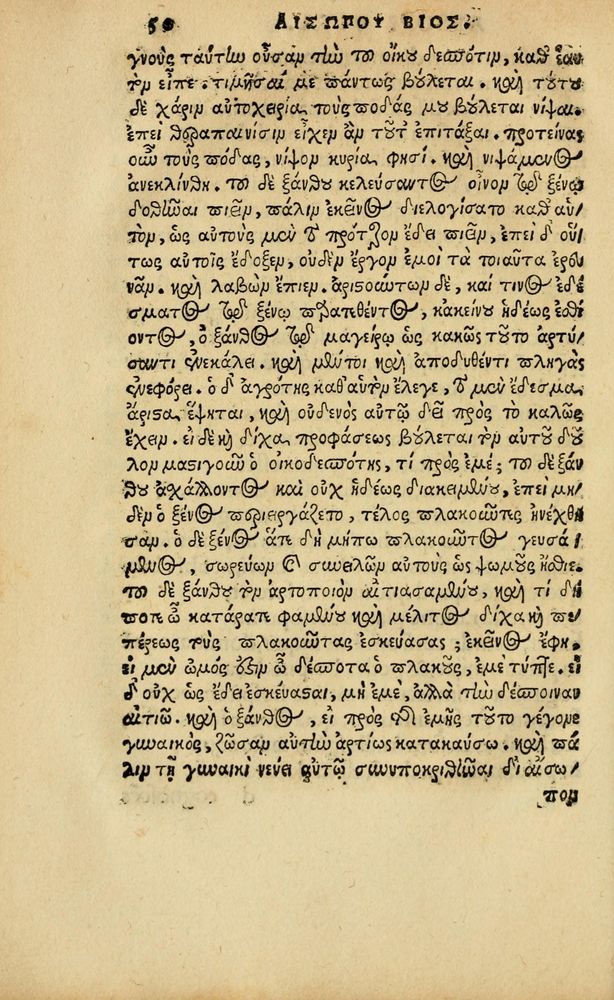 50 ΑΙΣΩΠΟΥ ΒΙΟΣ.
γνοὺς ταύτην οὖσαν τὴν τοῦ οἴκου δεσπότιν, καθ' ἑαυ
τὸν εἶπε. τιμῆσαί με πάντως βούλεται. καὶ τούτου
δὲ χάριν αὐτοχειρία τοὺς πόδας μου βούλεται νίψαι.
ἐπεὶ θεραπαινίσιν εἶχεν ἂν τοῦτ' ἐπιτάξαι. προτείνας
οὖν τοὺς πόδας, νίψον κυρία φησί. καὶ νιψάμενος
ἀνεκλίνθη. τοῦ δὲ ξάνθου κελεύσαντος οἶνον τῷ ξένῳ
δοθῆναι πιεῖν, πάλιν ἐκεῖνος διελογίσατο καθ' αὑ
τὸν, ὡς αὐτοὺς μὲν τὸ πρότερον ἔδει πιεῖν, ἐπεὶ δ' οὕ
τως αὐτοῖς ἔδοξεν, οὐδὲν ἔργον ἐμοὶ τὰ τοιαῦτα ἐρευ
νᾶν. καὶ λαβὼν ἔπιεν. ἀριστώντων δὲ, καί τινος ἐδέ
σματος τῷ ξένῳ παρατεθέντος, κᾀκείνου ἡδέως ἐσθί
οντος, ὁ ξάνθος τῷ μαγείρῳ ὡς κακῶς τοῦτο ἀρτύ
σαντι ἐνεκάλει. καὶ μέντοι καὶ ἀποδυθέντι πληγὰς
ἐνεφόρει. ὁ δ' ἀγρότης καθ' αὑτὸν ἔλεγε, τὸ μὲν ἔδεσμα
ἄριστα ἕψηται, καὶ οὐδενὸς αὐτῷ δεῖ πρὸς τὸ καλῶς
ἔχειν. εἰ δὲ καὶ δίχα προφάσεως βούλεται τὸν αὐτοῦ δοῦ
λον μαστιγοῦν ὁ οἰκοδεσπότης, τί πρὸς ἐμέ; τοῦ δὲ ξάν
θου ἀχάλλοντος καὶ οὐχ ἡδέως διακειμένου, ἐπεὶ μη
δὲν ὁ ξένος περιεργάζετο, τέλος πλακοῦντες ἠνέχθη
σαν. ὁ δὲ ξένος ἅτε δὴ μήπω πλακοῦντος γευσά
μενος, σωρεύων καὶ συνειλῶν αὐτοὺς ὡς ψωμοὺς ἤσθιε.
τοῦ δὲ ξάνθου τὸν ἀρτοποιὸν αἰτιασαμένου, καὶ τί δή
ποτε ὦ κατάρατε φαμένου καὶ μέλιτος δίχα καὶ πε
πέρεως τοὺς πλακοῦντας ἐσκεύασας; ἐκεῖνος ἔφη,
εἰ μὲν ὠμός ἐστιν ὦ δέσποτα ὁ πλακοῦς, ἐμὲ τύπτε. εἰ
δ' οὐχ ὡς ἔδει ἐσκεύασται, μὴ ἐμὲ, ἀλλὰ τὴν δέσποιναν
αἰτιῶ. καὶ ὁ ξάνθος, εἰ πρὸς τῆς ἐμῆς τοῦτο γέγονε
γυναικὸς, ζῶσαν αὐτὴν ἀρτίως κατακαύσω. καὶ πά
λιν τῇ γυναικὶ νεύει αὐτῷ συνυποκριθῆναι δι' αἴσω
πον